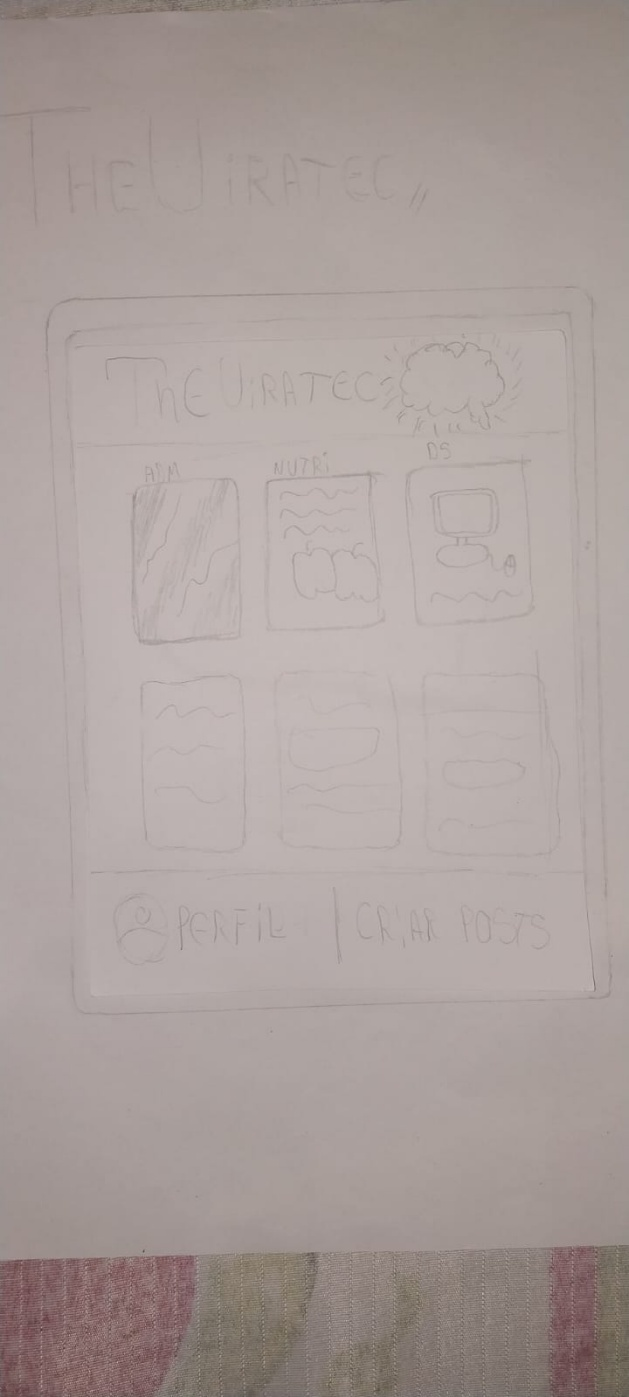 THE UIRATEC,,
THE UIRATEC
ADM
NUTRi
DS
PERFIL | CRiAR POSTS